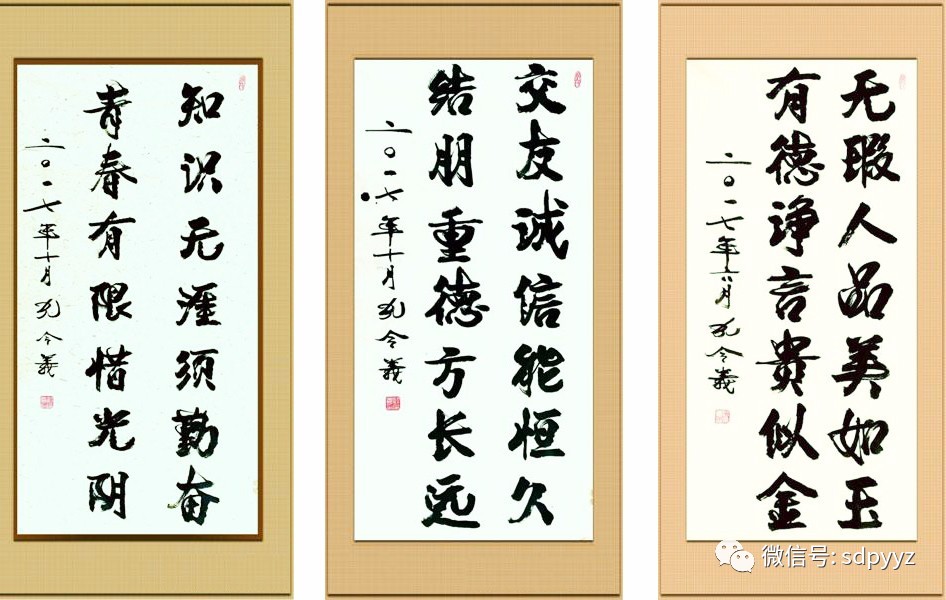 知识无涯须勤奋
青春有限惜光阴
二〇一七年十月孔令義
交友诚信能恒久
结朋重德方长远
二〇一七年十月孔令義
无瑕人品美如玉
有德诤言貴似金
二〇一七年六月孔令義
微信号: sdpyyz